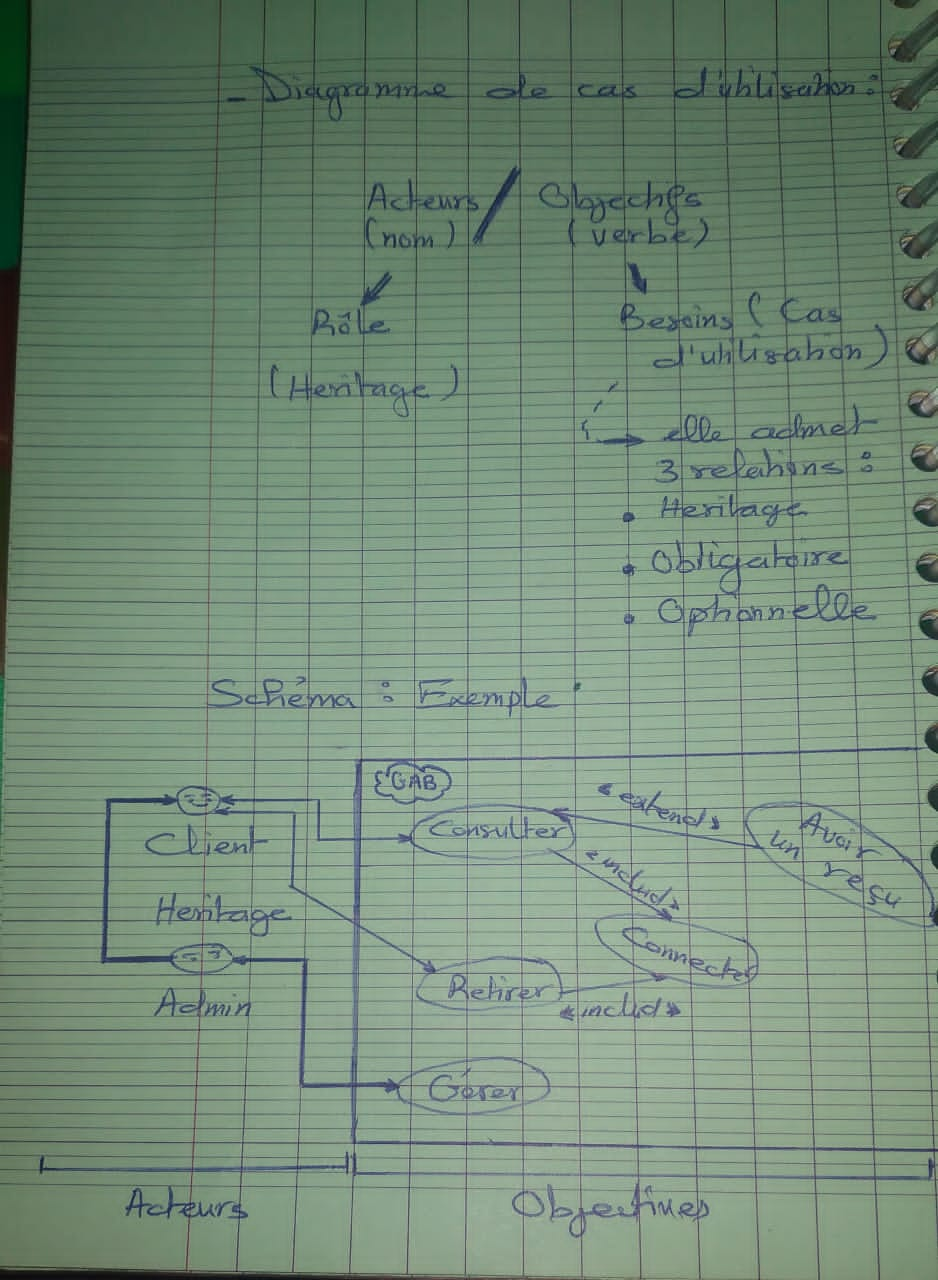 - Diagramme de cas d'utilisation :
Acteurs / Objectifs
(nom) (verbe)
Rôle
(Heritage)
Besoins ( Cas
d'utilisation )
elle admet
3 relations :
• Heritage
• Obligatoire
• Optionnelle
Schéma : Exemple :
GAB
Client
Heritage
Admin
Consulter
« extends »
Avoir
un
reçu
« includ »
Connecter
Retirer
« includ »
Gérer
Acteurs
Objectives